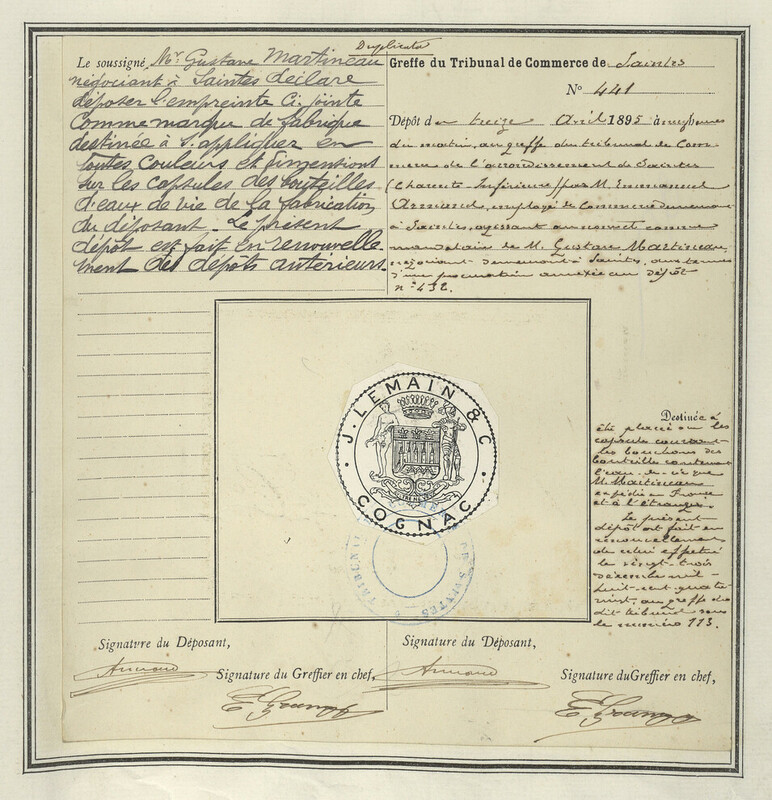 Duplicata
Le soussigné, Mr. Gustave Martineau
négociant à Saintes déclare
déposer l'empreinte ci-jointe
comme marque de fabrique
destinée à s'appliquer en
toutes couleurs et dimensions
sur les capsules des bouteilles
d'eaux de vie de la fabrication
du déposant. Le présent
dépôt est fait en renouvelle-
ment des dépôts antérieurs.
Greffe du Tribunal de Commerce de Saintes
No 441
Dépôt du treize Avril 1895 à neuf heures
du matin, au greffe du tribunal de Com-
merce de l'arrondissement de Saintes
(Charente-Inférieure) par M. Emmanuel
Armand, employé de Commerce demeurant
à Saintes, agissant au nom et comme
mandataire de M. Gustave Martineau,
négociant demeurant à Saintes, aux termes
d'une procuration annexée au dépôt
no 432.
J. LEMAIN & C
COGNAC
TRIBUNAL
SAINTES
Destinée à
être placée sur les
capsules couvrant
les bouchons des
bouteilles contenant
l'eau-de-vie que
M. Martineau
expédie en France
et à l'étranger.
Le présent
dépôt est fait en
renouvellement
de celui effectué
le vingt-trois
décembre mil
huit cent quatre
vingt, au greffe du
dit tribunal sous
le numéro 113.
Signature du Déposant,
Armand
Signature du Greffier en chef,
Signature du Déposant,
Armand
Signature du Greffier en chef,